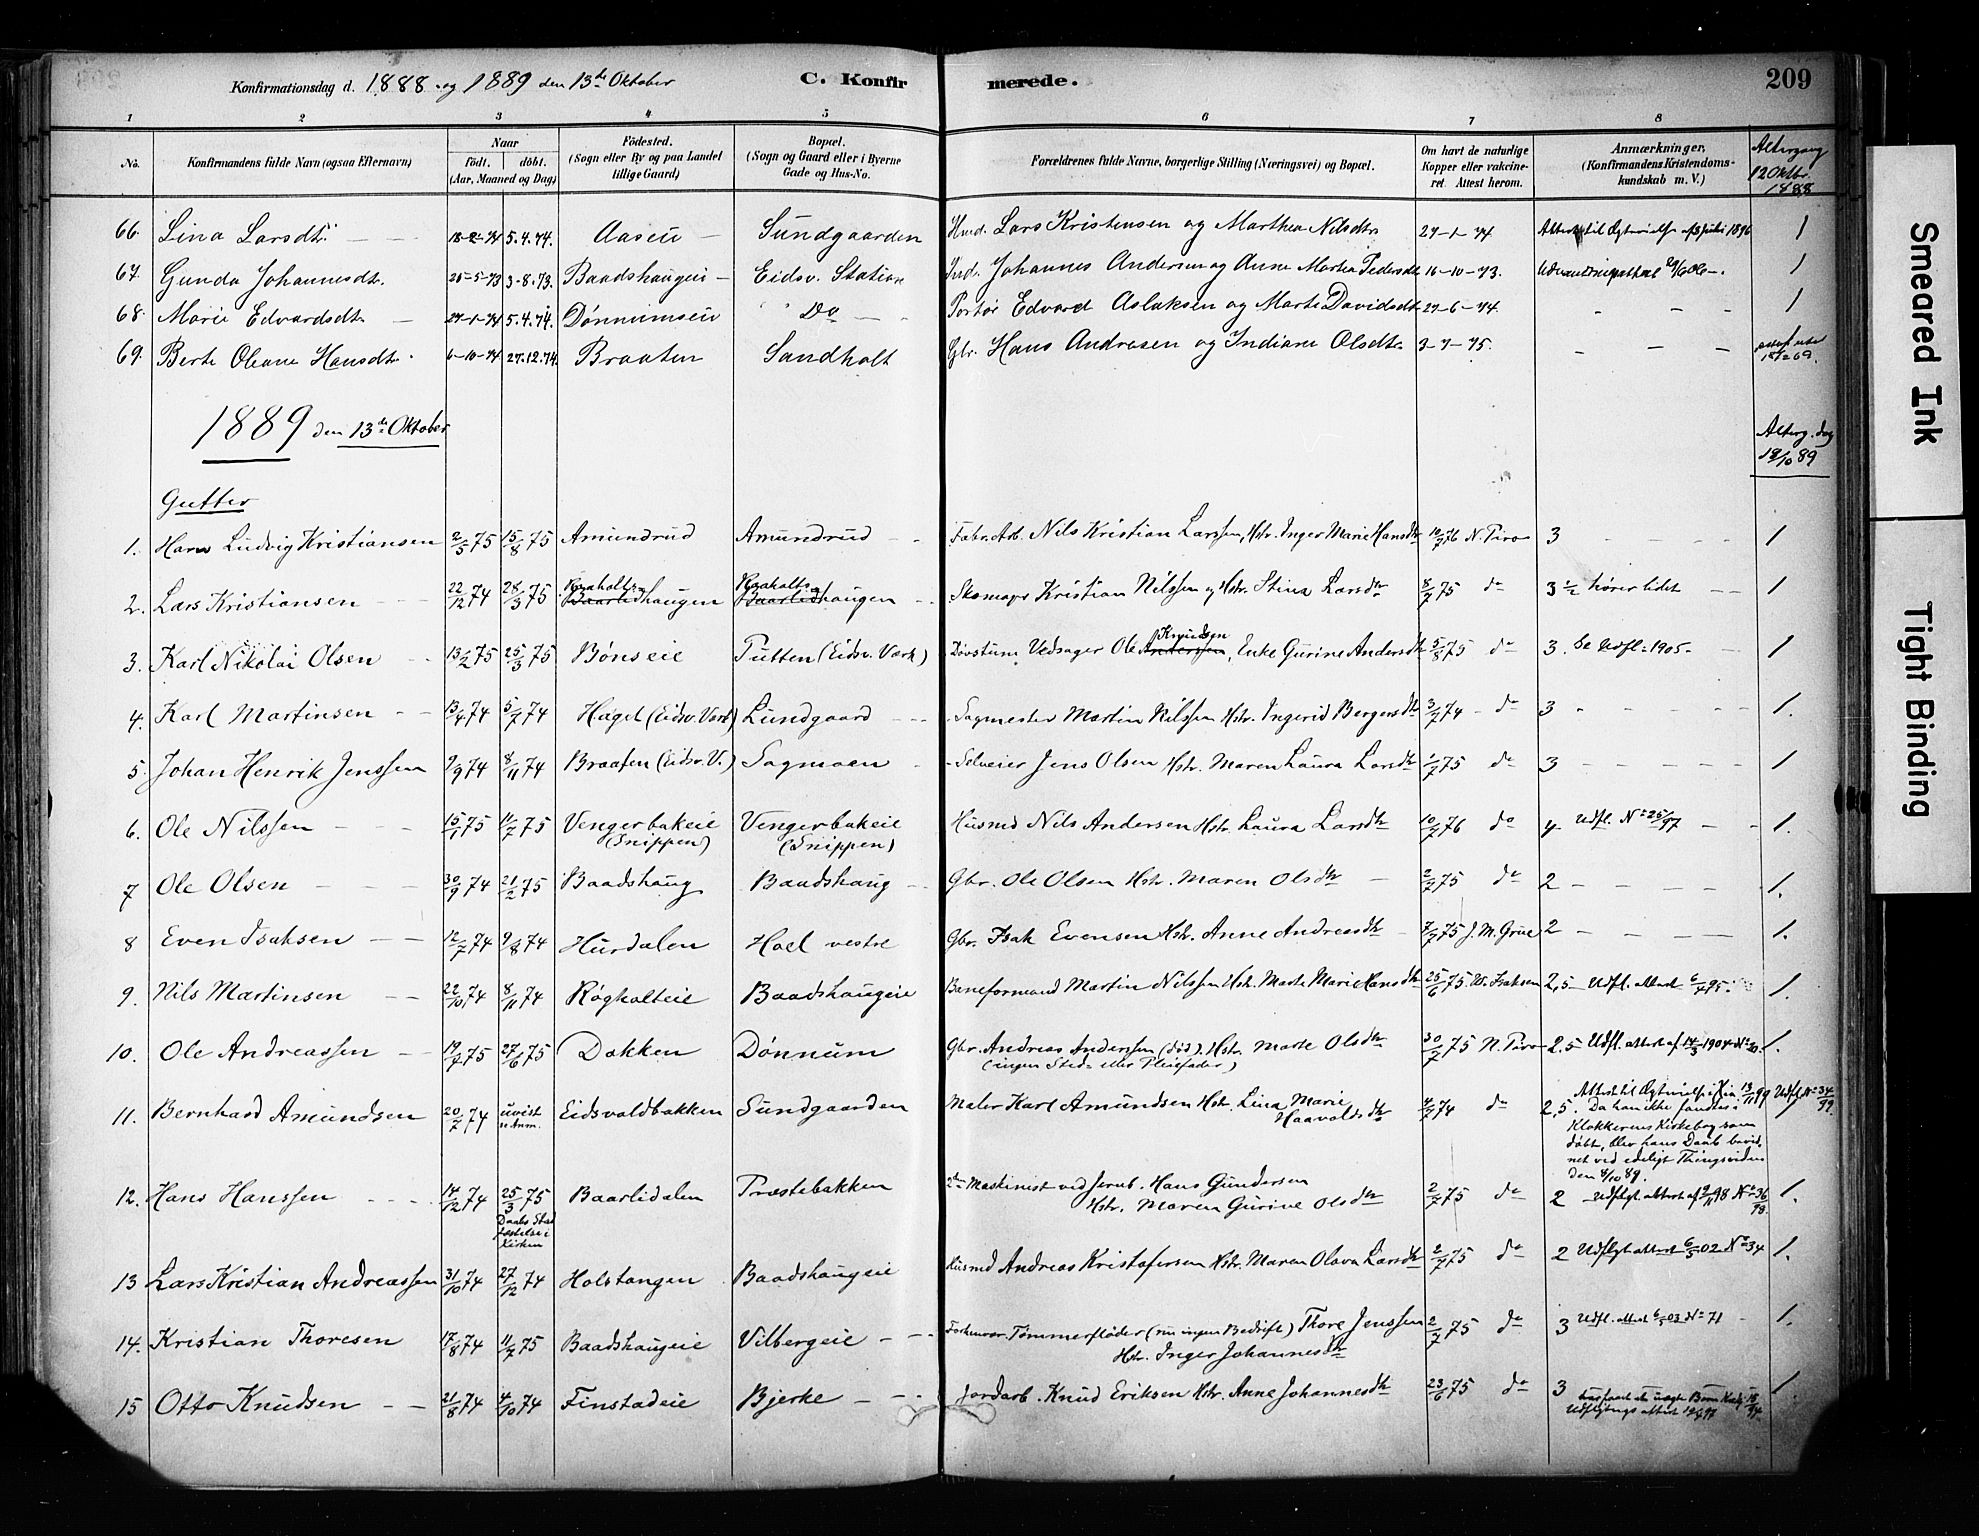 Konfirmationsdag d. 1888 og 1889 den 13de Oktober C. Konfirmerede. 209
1 2 3 4 5 6 7 8
No. Konfirmandens fulde Navn (ogsaa Efternavn) Naar født. døbt. (Aar, Maaned og Dag) Fødested. (Sogn eller By og paa Landet tillige Gaard) Bopæl. (Sogn og Gaard eller i Byerne Gade og Hus-No. Forældrenes fulde Navne, borgerlige Stilling (Næringsvei) og Bopæl. Om havt de naturlige Kopper eller vakcineret Attest herom. Anmærkninger. (Konfirmandens Kristendomskundskab m. V.) Altergang 12 Oktbr. 1888
66. Lina Larsdtr. 18-2-74 5.4.74. Aaseie Sundgaarden Husmd. Lars Kristensen og Marthea Nilsdtr. 27-1-74 1
67. Gunda Johannesdtr. 25-5-73 3-8.73. Baadshaugeie Eidsv. Station Johannes Andersen og Anne Martea Pedersdtr 16-10-73. 1
68. Marie Edvardsdtr. 27-1-74 5.4.74. Dønnumseie Do Portør Edvard Aslaksen og Marte Davidsdtr 27-6-74. 1
69. Berte Oleane Hansdtr. 6-10-74 27.12.74 Braaten Sandholt Gbr. Hans Andresen og Indiane Olsdtr. 3-7-75.
1889 den 13de Oktober Alterg. dag 18/10 89
Gutter
1. Hans Ludvig Kristiansen 2/5 75 15/8 75 Amundrud Amundrud Fabr. Arb. Nils Kristian Larssen, Hstr. Inger Marie Hansdtr 10/7 76 N. Piro 3 1
2. Lars Kristiansen 22/12 74 28/3 75 Raaholtshaugen Raaholtshaugen Skomager Kristian Nilssen og Hstr. Stina Larsdtr 8/7 75 do 3 1/2 hører lidet 1
3. Karl Nikolai Olsen 13/2 75 25/3 75 Bønseie Putten (Eidsv. Værk) Døvstum Vedsager Ole Anderssen Knudsen, Enke Gurine Andersdtr 5/8 75 do 3. Se Udfl. 1905. 1
4. Karl Martinsen 13/4 74 5/7 74 Haget (Eidsv. Værk) Lundgaard Sagmester Martin Nilssen Hstr. Ingerid Bergersdtr 3/7 74 do 3 1.
5. Johan Henrik Jenssen 9/9 74 8/11 74 Braaten (Eidsv. V.) Sagmoen Selveier Jens Olsen Hstr. Maren Laura Larsdtr 1/7 75 do 3 1
6. Ole Nilssen 15/1 75 11/7 75 Vengerbakeie (Snippen) Vengerbakeie (Snippen) Husmd Nils Andersen Hstr. Laura Larsdtr 10/7 76 do 4 Udfl. No 25/97 1.
7 Ole Olsen 30/9 74 21/2 75 Baadshaug Baadshaug Gbr. Ole Olsen Hstr. Maren Olsdtr 2/7 75 do 2 1.
8 Even Isaksen 12/7 74 9/8 74 Hurdalen Hoel vestre Gbr. Isak Evensen Hstr. Anne Andreasdtr 7/7 75 J. M. Grue 2 1.
9. Nils Martinsen 22/10 74 8/11 74 Røgholteie Baadshaugeie Baneformand Martin Nilssen Hstr. Marte Marie Hansdtr 25/6 75 W. Isaksen 2,5 Udfl. attest 6/4 95. 1.
10. Ole Andreassen 19/7 75 27/6 75 Dokken Dønnum Gbr. Andreas Anderssen (død). Hstr. Marte Olsdtr 30/7 75 N. Piro 2,5 Udfl. attest af 14/3 1904 No 30. 1.
(ingen Sted- eller Pleiefader)
11. Bernhard Amundsen 20/7 74 uvist se Anm. Eidsvoldbakken Sundgaarden Maler Karl Amundsen Hstr. Lina Marie Haavoldsdtr 4/7 74 do 2,5. Attest til Ægtevielse i Xia 13/11 99 Udfl. No 34/99.
Da han ikke fandtes i
Klokkerens Kirkebog som
døbt, blev hans Daab bevid-
net ved edeligt Thingsvidne
den 8/10 89.
12. Hans Hanssen 14/12 74 25/3 75 Daabs Stadfæstelse i Kirken Baarlidalen Præstebakken 2den Maskinist ved Jernb. Hans Gundersen Hstr. Maren Gurine Olsdtr 2/7 75 do 2 Udflgt. attest af 9/11 98 No 36/98. 1.
13 Lars Kristian Andreassen 31/10 74 27/12 74 Holstangen Baadshaugeie Husmd Andreas Kristofersen Hstr. Maren Olava Larsdtr 2/7 75 do 2 Udflgt attest 6/5 02 No 34 1.
14. Kristian Thoresen 17/8 74 11/7 75 Baadshaugeie Vilbergeie Forhenvær. Tømmerfløder (nu ingen Bedrift) Thore Jenssen Hstr. Inger Johannesdtr 2/7 75 do 3 Udfl. attest 6/5 03 No 71 1.
15 Otto Knudsen 21/8 74 4/10 74 Finstadeie Bjerke Jordarb. Knud Eriksen Hstr. Anne Johannesdtr 23/6 75 do 3 1.
Smeared Ink
Tight Binding